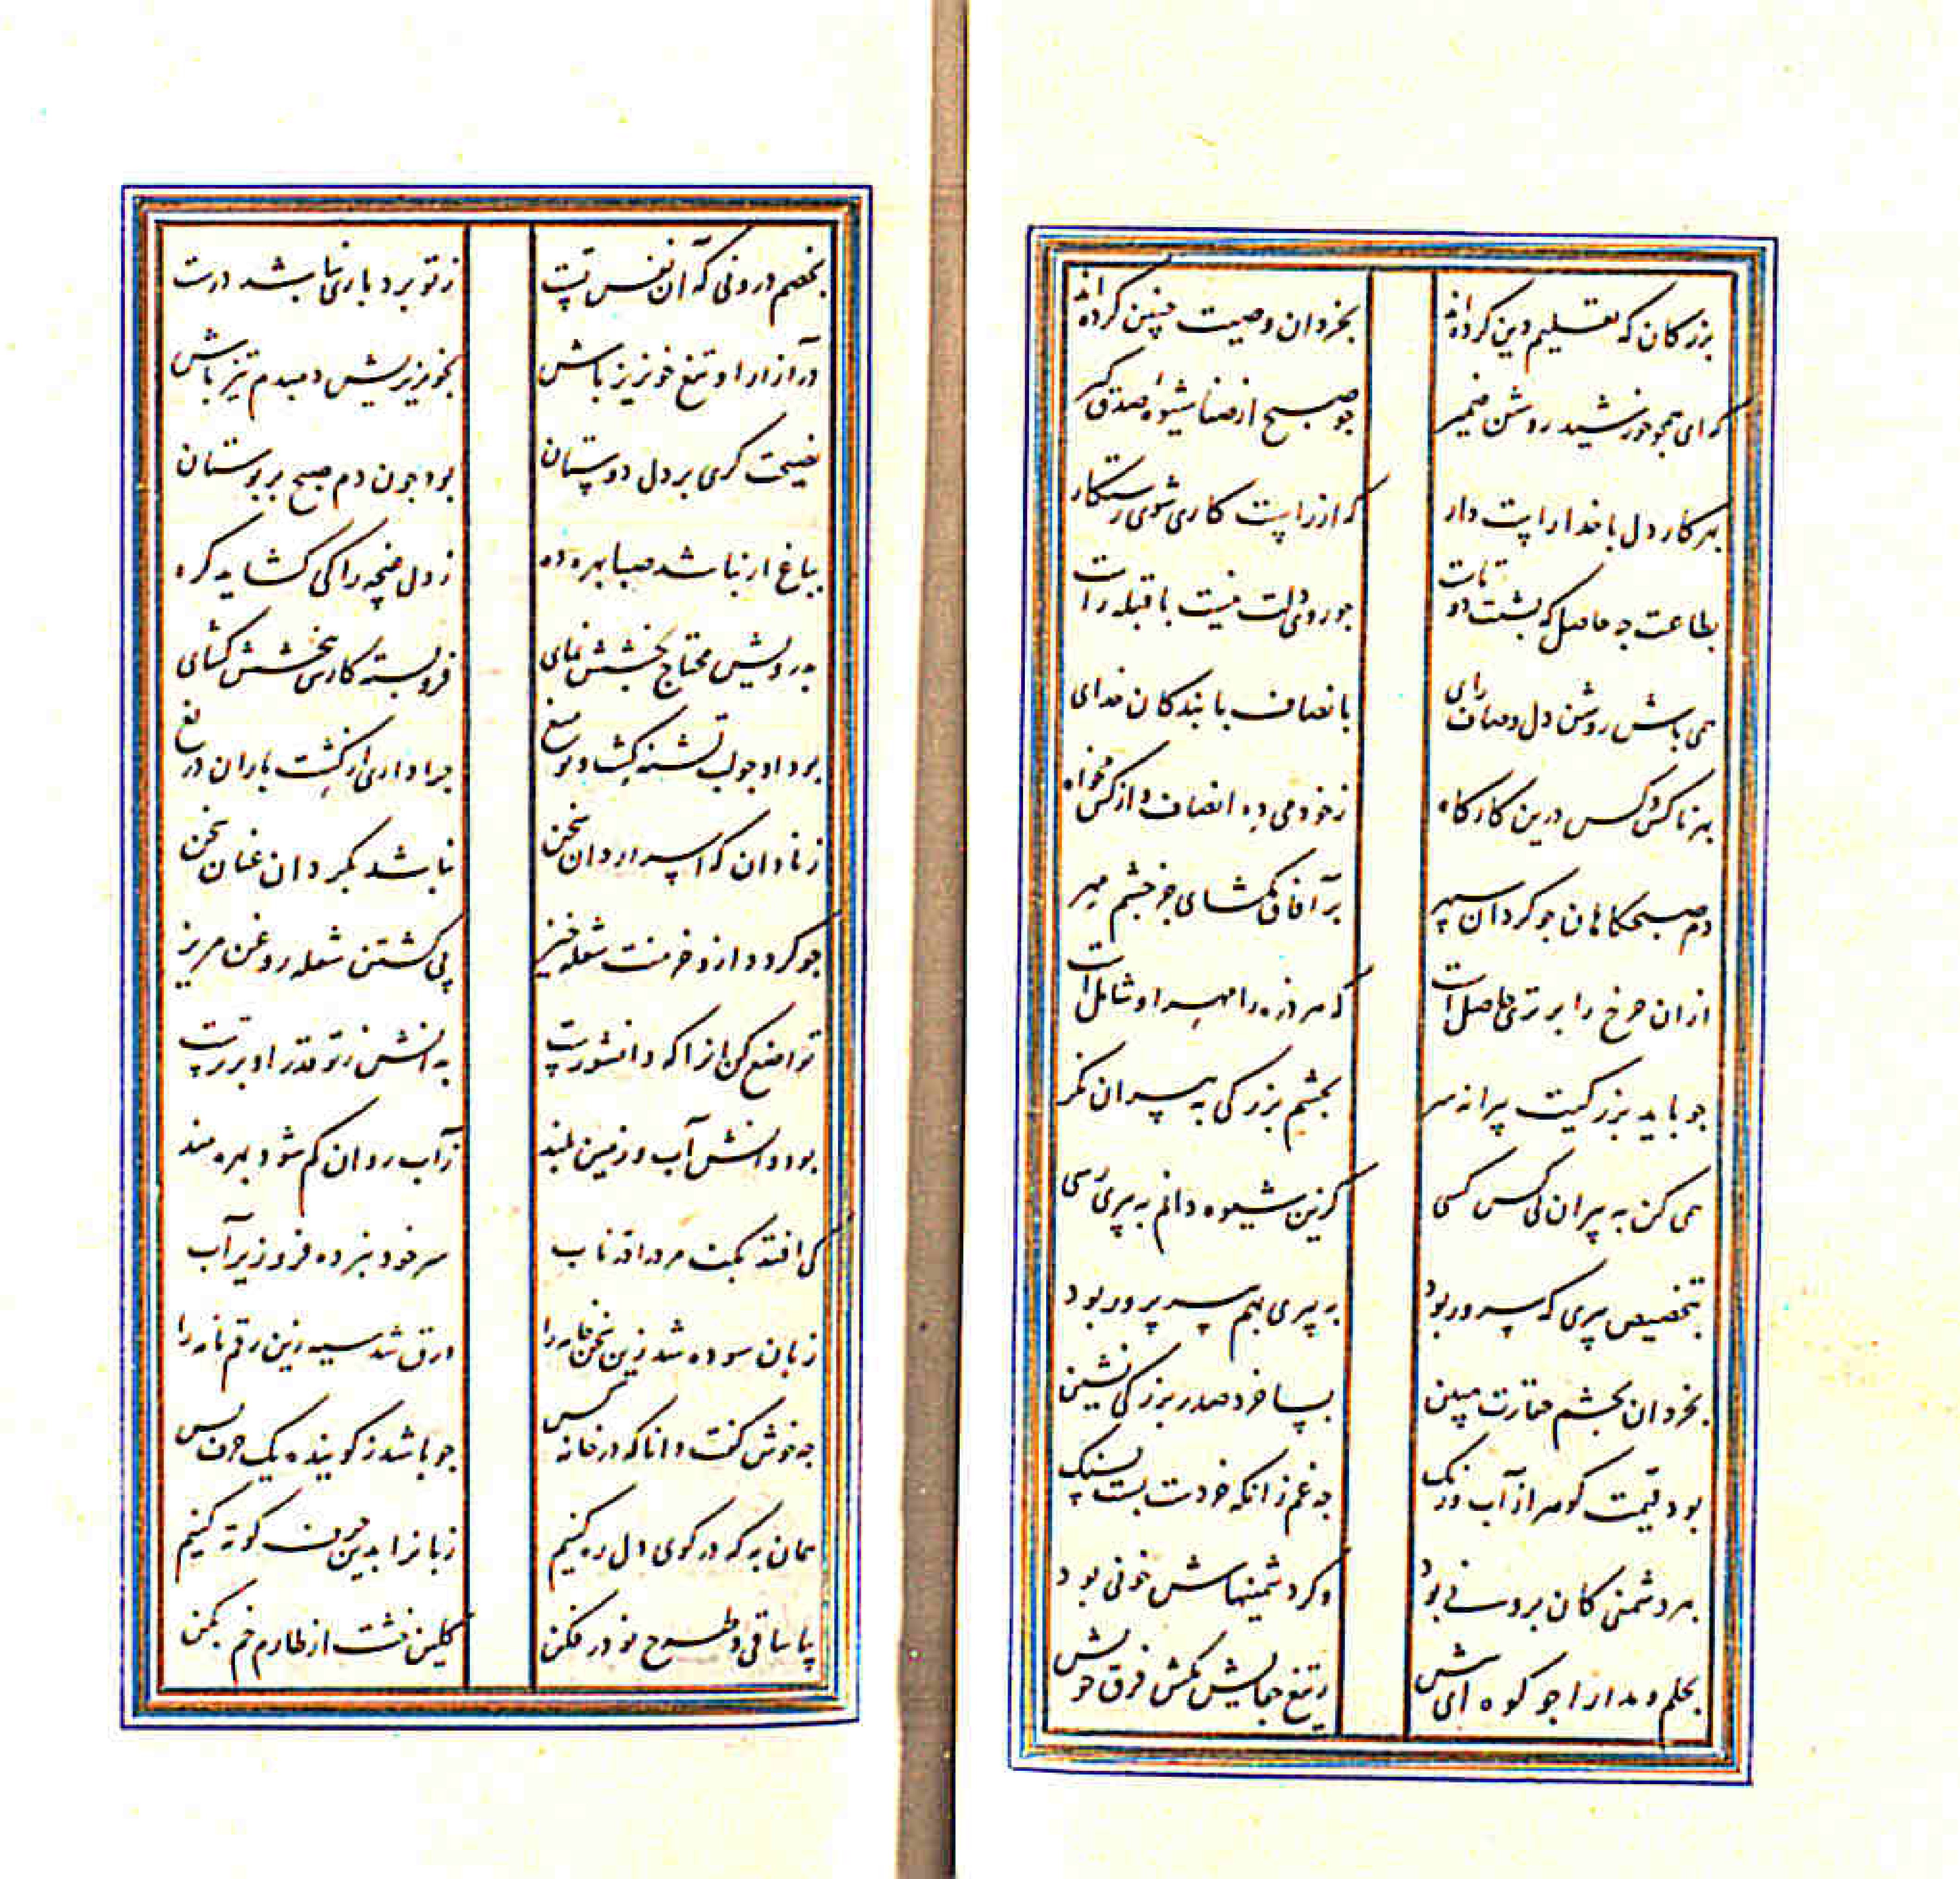 بزرکان که تعلیم دین کرده‌اند بخردان وصیت چنین کرده‌اند
که ای همجو خورشید روشن ضمیر جو صبح از صفا شیوه صدق کیر
بهر کار دل با خدا راست دار که از راست کاری شوی رستکار
بطاعت جه حاصل که پشتت دوتاست جو روی دلت نیست با قبله راست
همی باش روشن دل و صاف رای بانصاف با بندکان خدای
بهر ناکس و کس درین کارکاه زخود می ده انصاف و از کس مخواه
دم صبحکاهان جو کردان سپهر بر آفاق مکشای جز جشم مهر
ازان جرخ را برتری حاصل است که هر ذره را مهر او شامل است
جو باید بزرکیت پیرانه سر بجشم بزرکی به پیران نکر
همی کن به پیران کی کس کسی کزین شیوه دانم به پیری رسی
بتخصیص پیری که سرور بود به پیری هم سر پرور بود
بخردان بجشم حقارت مبین بسا خرد صدر بزرکی نشین
بود قیمت کوهر از آب ورنک جه غم زانکه خردست بسنک
بهر دشمنی کان برونی بود وکر دشمنیهاش خونی بود
بحلم و مدارا جو کوه ای ش ز تیغ جفایش مکش فرق خویش
بخصم درونی که آن نفس تست ز تو بردباری نباشد درست
در آزار او تیغ خونریز باش بخونریزیش دمبدم تیز باش
نصیحت کری بر دل دوستان بود جون دم صبح بر بوستان
بباغ ار نباشد صبا بهره ده ز دل غنچه را کی کشاید کره
بدرویش محتاج بخشش نمای فروبسته کارش ببخشش کشای
بود او جو لب تشنه کشت و تو میغ جرا داری از کشت باران دریغ
ز نادان که اسرار دان سخن نباشد بکردان عنان سخن
جو کردد ازو خرمنت شعله خیز پی کشتن شعله روغن مریز
تواضع کن آنرا که دانشورست بدانش ز تو قدر او برترست
بود دانش آب و زمین بلند ز آب روان کم شود بهره مند
کی افتد بکف مرد را در ناب سر خود نبرده فرو زیر آب
زبان سوده شد زین سخن خامه را ورق شد سیه زین رقم نامه را
جه خوش کفت دانا که در خانه کس جو باشد ز کوینده یک حرف بس
همان به که در کوی دل ره کنیم زبانرا بدین حرف کوته کنیم
بیا ساقی و طرح نو در فکن کلین خشت از طارم خم بکن